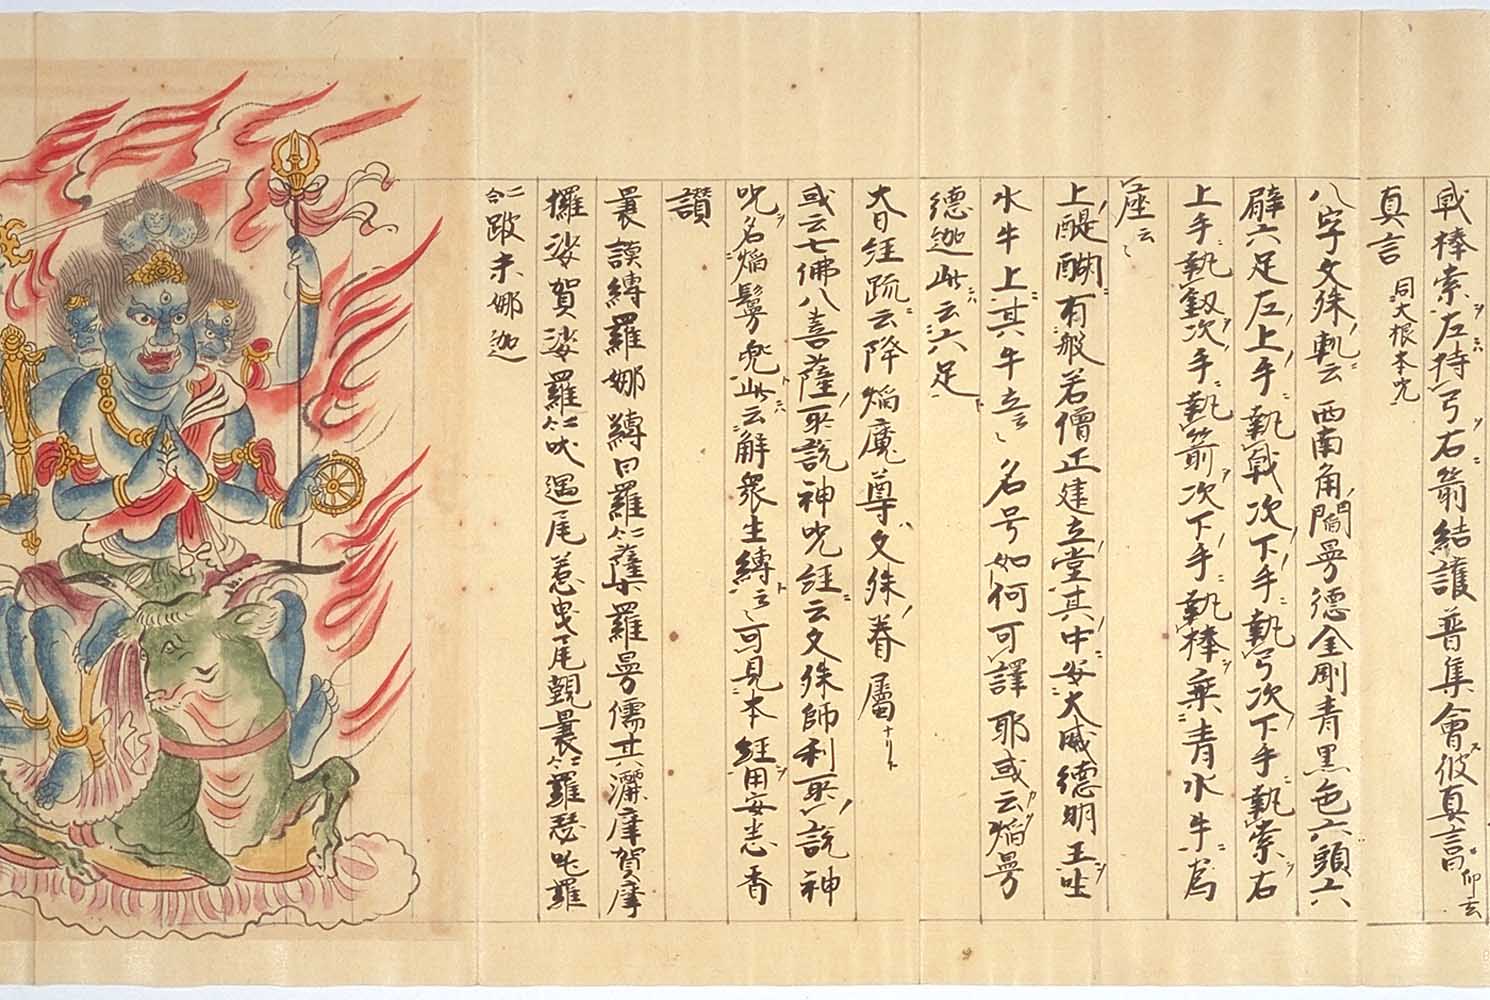 戟棒索左持弓右箭結護普集會伇真言仰云
真言同大根本咒
八字文殊軌云西南角門焔曼德金剛青黑色六頭六
臂六足左上手執戟次下手執弓次下手執索右
上手執釼次手執箭次下手執棒乘青水牛為
座云〻
上醍醐有般若僧正建立堂其中安大威德明王吐
水牛上其牛立云〻名号如何可譯耶或云焔曼
德迦此云六足
大日経疏云降焔魔尊文殊眷屬ナリト
或云七佛八菩薩所說神咒経云文殊師利所說神
咒名焔鬘兜此云解眾生縛云〻可見本経用安悉香
讃
曩謨縛羅娜縛日羅二合薩羅曼儒灑摩賀摩
攞娑賀娑羅二合吠遏尾惹曳尾覩曩二合羅瑟吒羅
二合跛末娜迦